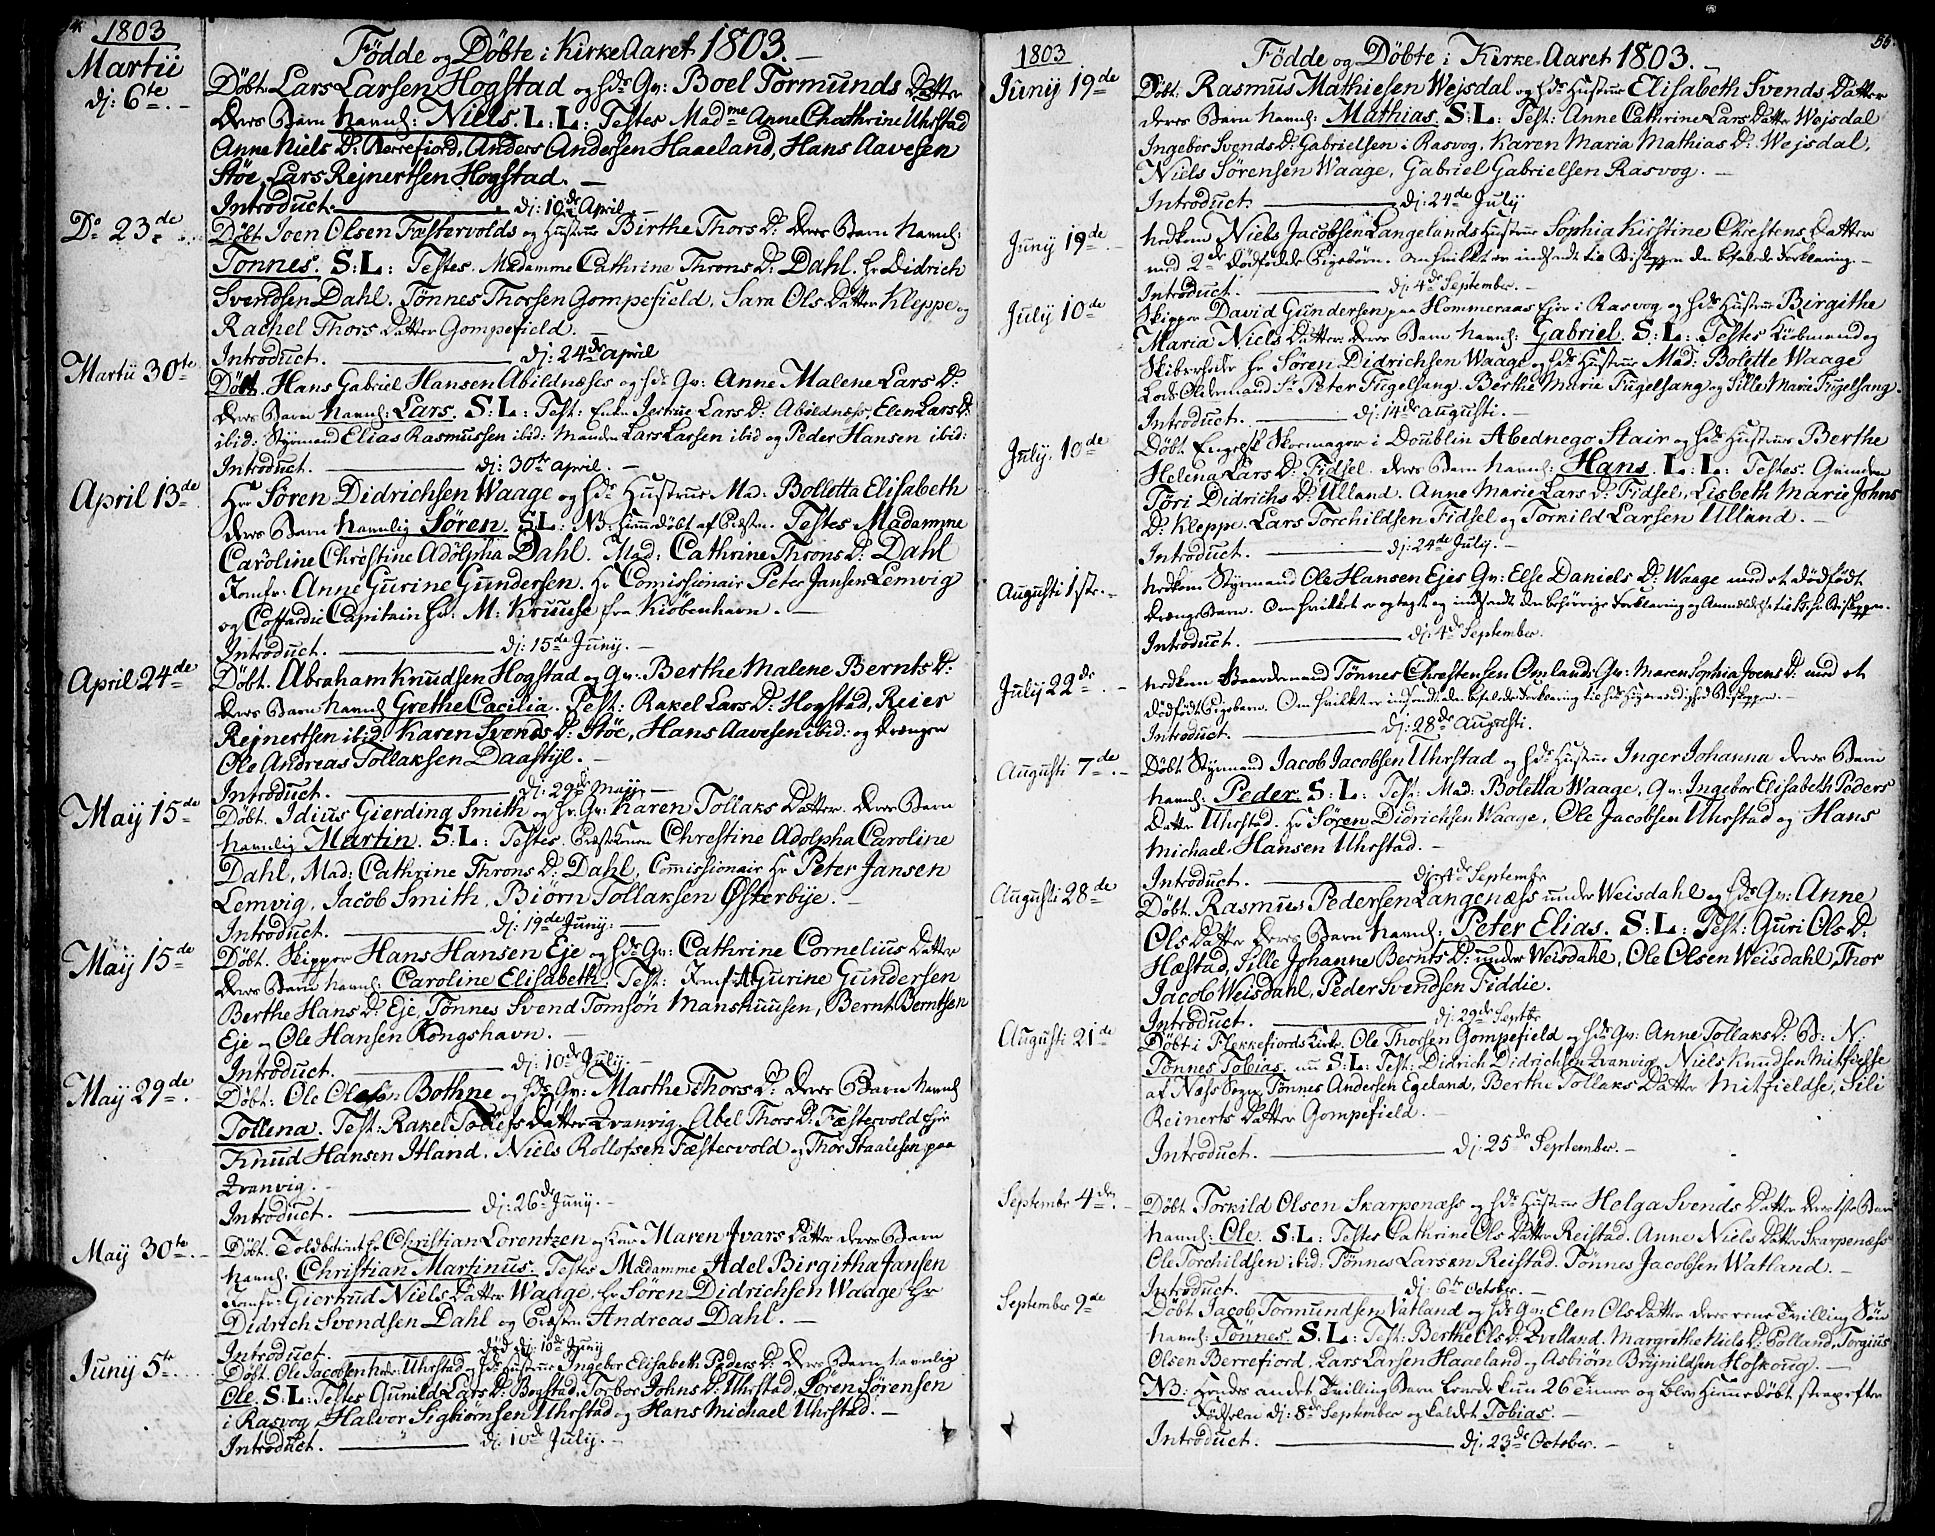 1803
Födde og Döbte i Kirke Aaret 1803.
Martii
dj: 6te
Döbt Lars Larsen Hogstad og hds Qv: Boel Tormunds Datter
deres Barn navnl: Niels. L: L: Testes Madme Anne Chathrine Uhrstad
Anne Niels D: Berrefiord, Anders Andersen Haaeland, Hans Aavesen
Stöe, Lars Rejnertsen Hogstad.
Introduct. dj: 10de April.
Do 23de
Döbt Joen Olsen Fæstervolds og Hustrue Birthe Thors D: deres Barn navnl:
Tönnes. S: L: Testes. Madamme Cathrine Throns D: Dahl. hr Didrich
Svendsen Dahl. Tönnes Thorsen Gompefield. Sara Ols Datter Kleppe og
Rachel Thors Datter Gompefield.
Introduct. dj: 24de April
Martii 30te
Döbt. Hans Gabriel Hansen Abildnæses og hds Qv: Anne Malene Lars D:
deres Barn navnl: Lars. S: L: Test: Enke Jertrue Lars D: Abildnæss, Elen Lars D:
ibid: Styrmand Elias Rasmussen ibid: Manden Lars Larsen ibid og Peder Hansen ibid:
Introduct. dj: 30te April.
April 13de
Hr Sören Didrichsen Waage og hds Hustrue Mad: Bolletta Elisabeth
deres Barn navnlig Sören. S: L: NB: Himedöbt af Præsten. Testes Madamme
Caroline Chrestine Adolphia Dahl. Mad: Cathrine Throns D: Dahl
Jomfr: Anne Gurine Gundersen. hr Comissionair Peter Jansen Lemvig
og Coffardie Capitain hr: M: Kruuse fra Kiöbenhavn.
Introduct. dj: 15de Juny.
April 24de
Döbt. Abraham Knudsen Hogstad og Qv: Berthe Malene Bernts D:
deres Barn navnl Grethe Cæcilia. Test: Rakel Lars D: Hogstad, Reier
Rejnertsen ibid: Karen Svends D: Stöe, Hans Aavesen ibid: og Drengen
Ole Andreas Tollaksen Daastyl.
Introduct. dj: 29de Maij.
Maij 15de
Döbt. Idius Gierding Smith og hs Qv: Karen Tollaks Datter. deres Barn
navnlig Martin. S: L: Testes. Præstekonen Chrestine Adolpha Caroline
Dahl, Mad: Cathrine Throns D: Dahl, Comissionair hr Peter Jansen
Lemvig, Jacob Smith, Biörn Tollaksen Østerbye.
Introduct. dj: 19de Juny.
Maij 15de
Döbt. Skipper Hans Hansen Eje og hds Qv: Cathrine Cornelius Datter
deres Barn navnl: Caroline Elisabeth. Test: Jomf: A Gurine Gundersen
Berthe Hans D: Eje, Tönnes Svend Tomsön Manskuusen, Bernt Berntsen
Eje og Ole Hansen Kongshavn.
Introduct. dj: 10de July.
Maij 29de
Döbt: Ole Olesen Bothne og hds Qv: Marthe Thors D: deres Barn navnl
Tollena. Test: Rakel Tollefs Datter Qvanvig. Abel Thors D: Fæstervold
Knud Hansen Itland. Niels Rollofsen Fæstervold og Thor Staalesen paa
Qvanvig.
Introduct. dj: 26de Juny.
May 30te
Döbt. Toldbetient hr Christian Lorentzen og Kone Maren Ivars Datter deres Barn
navnl: Christian Martinus. Testes Madamme Adel Birgitha Jansen
Jomfr: Giertrud Niels Datter Waage. hr Sören Didrichsen Waage hr
Didrich Svendsen Dahl og Præsten Andreas Dahl.
Introduct. död dj: 10de Juny
Junij 5te
Döbt. Ole Jacobsen Uhrstad og hds Hustrue Ingebor Elisabeth Peders D: deres Barn navnlig
Ole. S: L: Testes Gunild Lars D: Bogstad, Torbor Johns D: Uhrstad, Sören Sörensen
i Rasvog, Halvor Sigbiörnsen Uhrstad og Hans Michael Uhrstad.
Introduct. dj: 10de July.
1803
Födde og Döbte i Kirke Aaret 1803.
Junij 19de
Döbt: Rasmus Mathiesen Wejsdal og hds Hustrue Elisabeth Svends Datter
deres Barn navnl: Mathias. S: L: Test: Anne Cathrine Lars Datter Wejsdal
Ingebor Svends D: Gabrielsen i Rasvog. Karen Maria Mathias D: Wejsdal,
Niels Sörensen Waage, Gabriel Gabrielsen Rasvog.
Introduct. dj: 24de July
Junij 19de
nedkom Niels Jacobsen Langelands Hustrue Sophia Kirstine Chrestens Datter
med 2de dödfödde Pigebörn. om hvilket er indsendt til Biskoppen den befalede Forklaring.
Introduct. dj: 4de September.
July 10de
Skipper David Gundersen paa Hommeraas Ejer i Rasvog og hds Hustrue Birgithe
Maria Niels Datter deres Barn navnl: Gabriel. S: L: Testes Kiöbmand og
Skibsreder hr Sören Didrichsen Waage og hds Hustrue Mad: Bolette Waage
Lods Oldermand Sr Peter Fugelsang. Berthe Marie Fugelsang og Sille Marie Fugelsang.
Introduct. dj: 14de Augusti.
July. 10de
Döbt Engelsk Skoemager i Doublin Abednego Stair og hds Hustrue Berthe
Helena Lars D: Fidsel. deres Barn navnl: Hans. L: L: Testes. Qvinden
Töri Didrichs D: Ulland. Anne Marie Lars D: Fidsel, Lisbeth Marie Johns
D: Kleppe. Lars Torchildsen Fidsel og Torkild Larsen Ulland.
Introduct. dj: 24de July.
Augusti 1ste
nedkom Styrmand Ole Hansen Ejes Qv: Else Daniels D: Waage med et dödfödt
Drenge Barn. Om hvilket er optagt og indsendt den behörrige Forklaring og Anmeldelse til Biskoppen.
Introduct. dj: 4de September.
July 22de
nedkom Tönnes Chrestensen Omlands Qv: Maren Sophia Joens D: med et
dödfödt Pigebarn. Om hvilket er indsendt den befalede Forklaring til hds Höyærværdighed Biskoppen.
Introduct. dj: 28de Augusti.
Augusti 7de
Döbt Styrmand Jacob Jacobsen Uhrstad og hds Hustrue Inger Johanna deres Barn
navnl: Peder. S: L: Test: Mad: Boletta Waage, Qv: Ingebor Elisabeth Peders
Datter Uhrstad. hr Sören Didrichsen Waage, Ole Jacobsen Uhrstad og Hans
Michael Hansen Uhrstad.
Introduct. dj: 4de Septembr
Augusti 28de
Döbt. Rasmus Pedersen Langenæss under Weisdahl og hds Qv: Anne
Ols Datter deres Barn navnl: Peter Elias. S: L: Test: Guri Ols D:
Hæstad, Sille Johanne Bernts D: under Weisdahl, Ole Olsen Weisdahl, Thor
Jacob Weisdahl, Peder Svendsen Fiddie.
Introduct. dj: 29de Septbr
Augusti 21de
Döbt i Flekkefiords Kirke. Ole Thorsen Gompefield og hds Qv: Anne Tollaks D: B: N:
Tönnes Tobias. S: L: Test: Didrich Didrichsen Qvanvig. Niels Knudsen Mitfielse
af Næss Sogn. Tönnes Andersen Egeland, Berthe Tollaks Datter Mitfieldse, Sili
Reinerts Datter Gompefield.
Introduct. dj: 25de September.
Septembr 4de
Döbt Torkild Olsen Skarpenæss og hds Hustrue Helga Svends Datter deres 1ste Barn
navnl: Ole. S: L: Testes Cathrine Ols Datter Reistad. Anne Niels Datter Skarpenæss
Ole Torchildsen ibid: Tönnes Larsen Reistad. Tönnes Jacobsen Watland.
Introduct. dj: 6te October.
September 9de
Döbt Jacob Tormundsen Vatland og hds Qv: Elen Ols Datter deres eene Tvilling Sön
navnl: Tönnes. S: L: Test: Berthe Ols D: Qvilland. Margrethe Niels D: Polland, Torgius
Olsen Berrefiord, Lars Larsen Haaeland og Asbiörn Brynildsen Hoskoug.
NB: Hendes andet Tvilling Barn levede kun 26 Timer og blev Himedöbt strax efter
Födselen dj: 8de September og kaldet Tobias.
Introduct. dj: 23de October.